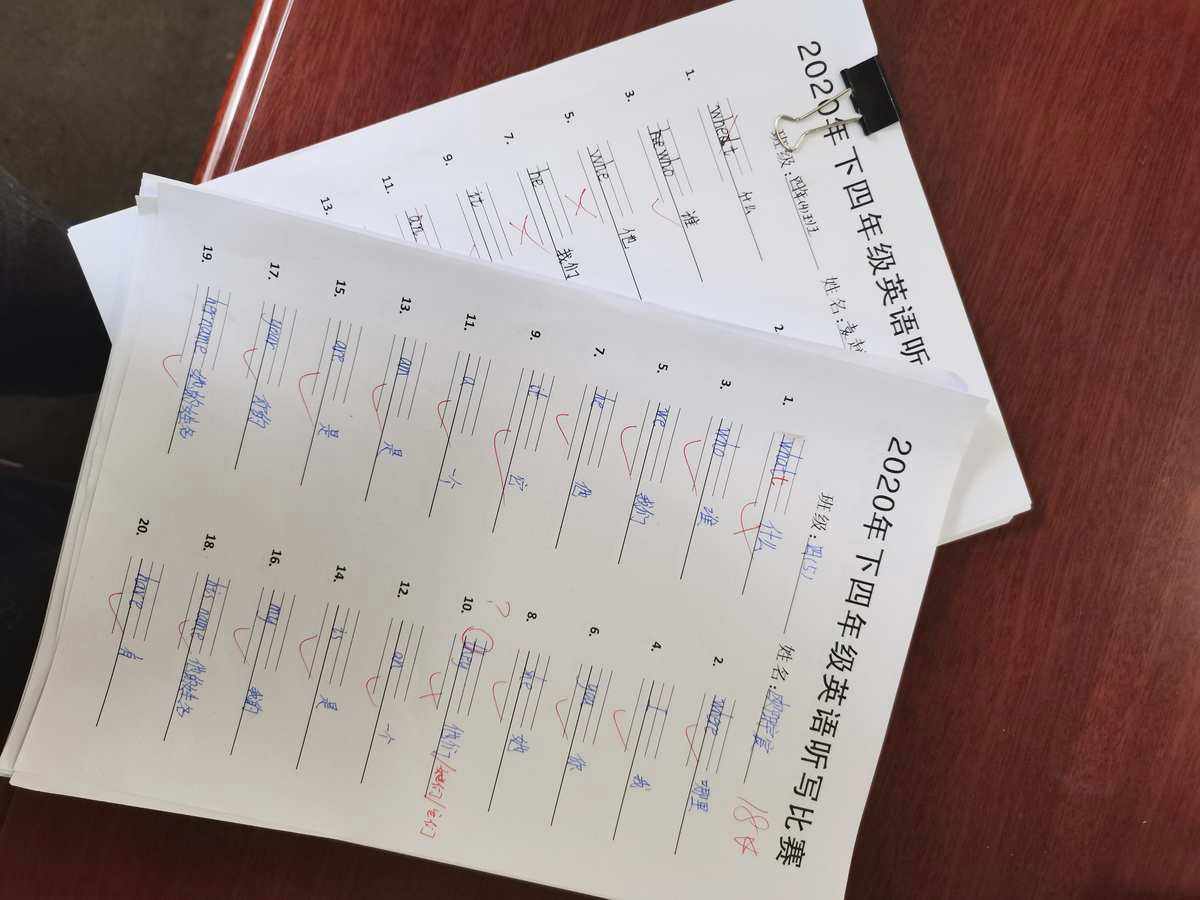 2020年下四年级英语听
班级：四年(4)班 姓名：袁
1. what 什么
2.
3. who 谁
5. whe 他
7. he 我们
9. it
11.
13.
2020年下四年级英语听写比赛
班级：四(5) 姓名： 18
1. what 什么 2. where 哪里
3. who 谁 4. I 我
5. we 我们 6. you 你
7. he 他 8. she 她
9. it 它 10. they 他们/她们/它们
?
11. a 一个 12. an 一个
13. am 是 14. is 是
15. are 是 16. my 我的
17. your 你的 18. his name 他的姓名
19. her name 她的姓名 20. have 有